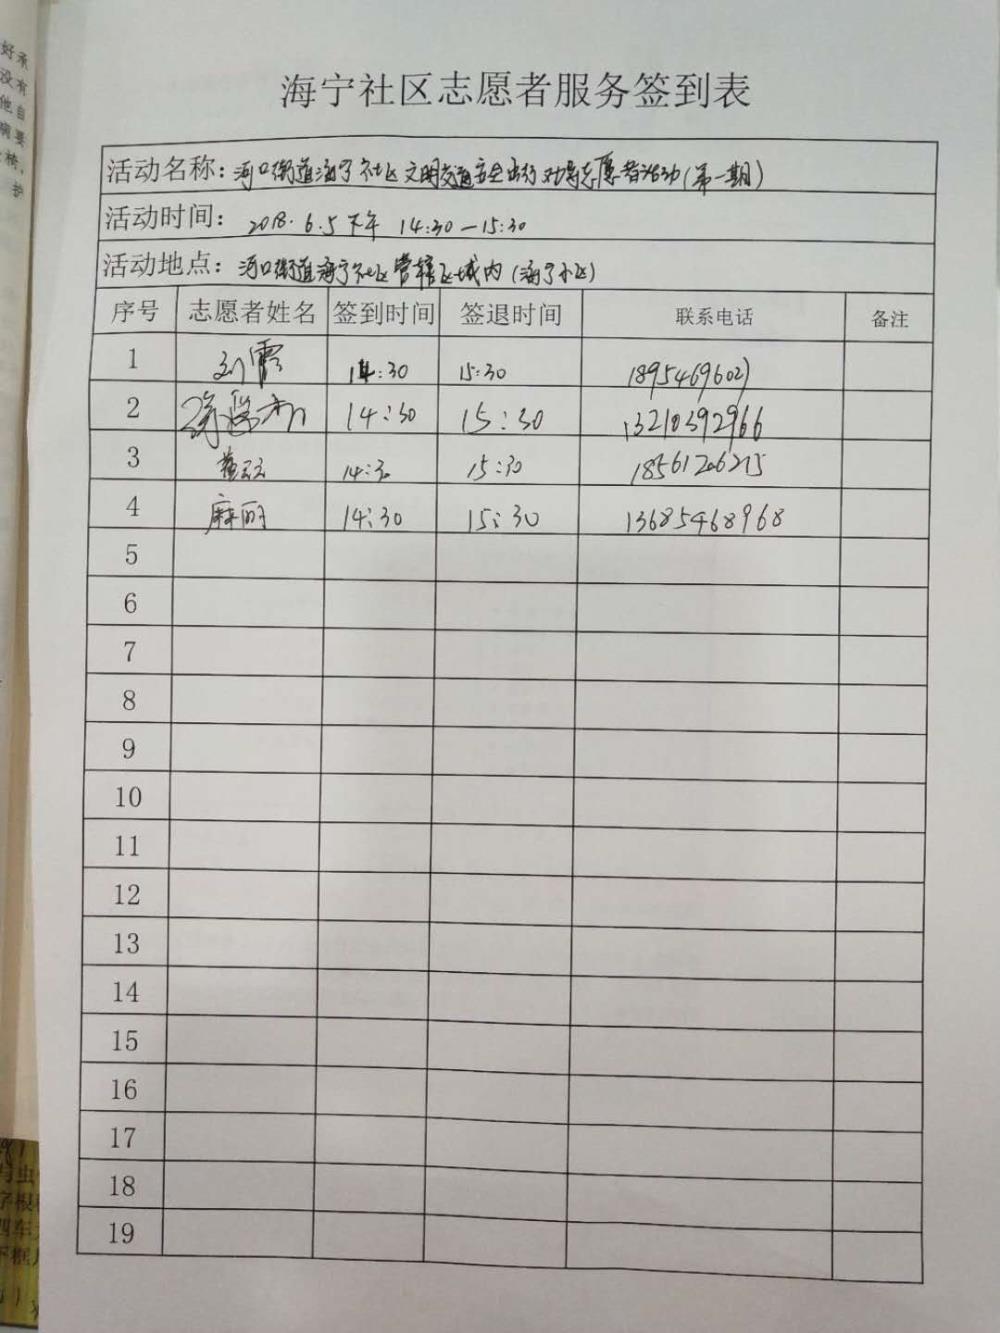 海宁社区志愿者服务签到表
活动名称：河口街道海宁社区文明交通安全出行劝导志愿者活动(第一期)
活动时间：2018.6.5下午 14:30—15:30
活动地点：河口街道海宁社区管辖区域内(海宁小区)
序号 志愿者姓名 签到时间 签退时间 联系电话 备注
1 刘霞 14:30 15:30
2 14:30 15:30 13210392966
3 14:30 15:30
4 麻丽 14:30 15:30 13685468968
5
6
7
8
9
10
11
12
13
14
15
16
17
18
19